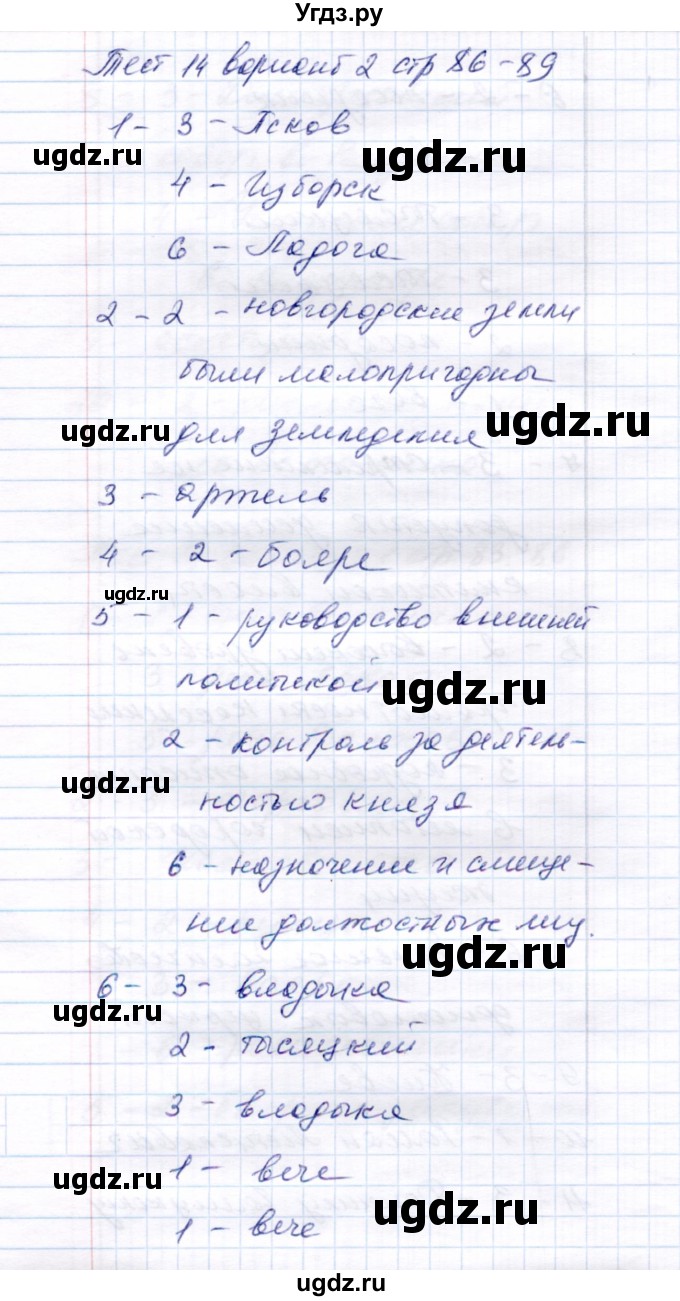 Угдз.ру
Тест 14 вариант 2 стр 86-89
1 - 3 - Псков
ugdz.ru ugdz.ru
4 - Изборск
6 - Ладога
2 - 2 - новгородские земли
были малопригодны
ugdz.ru ugdz.ru
для земледелия
3 - артель
4 - 2 - бояре
ugdz.ru
5 - 1 - руководство внешней
политикой
ugdz.ru
2 - контроль за деятель-
ugdz.ru
ностью князя
6 - назначение и смеще-
ние должостных лиц.
ugdz.ru
6 - 3 - владыка
ugdz.ru
2 - тысяцкий
3 - владыка
1 - вече
ugdz.ru ugdz.ru
1 - вече
ugdz.ru